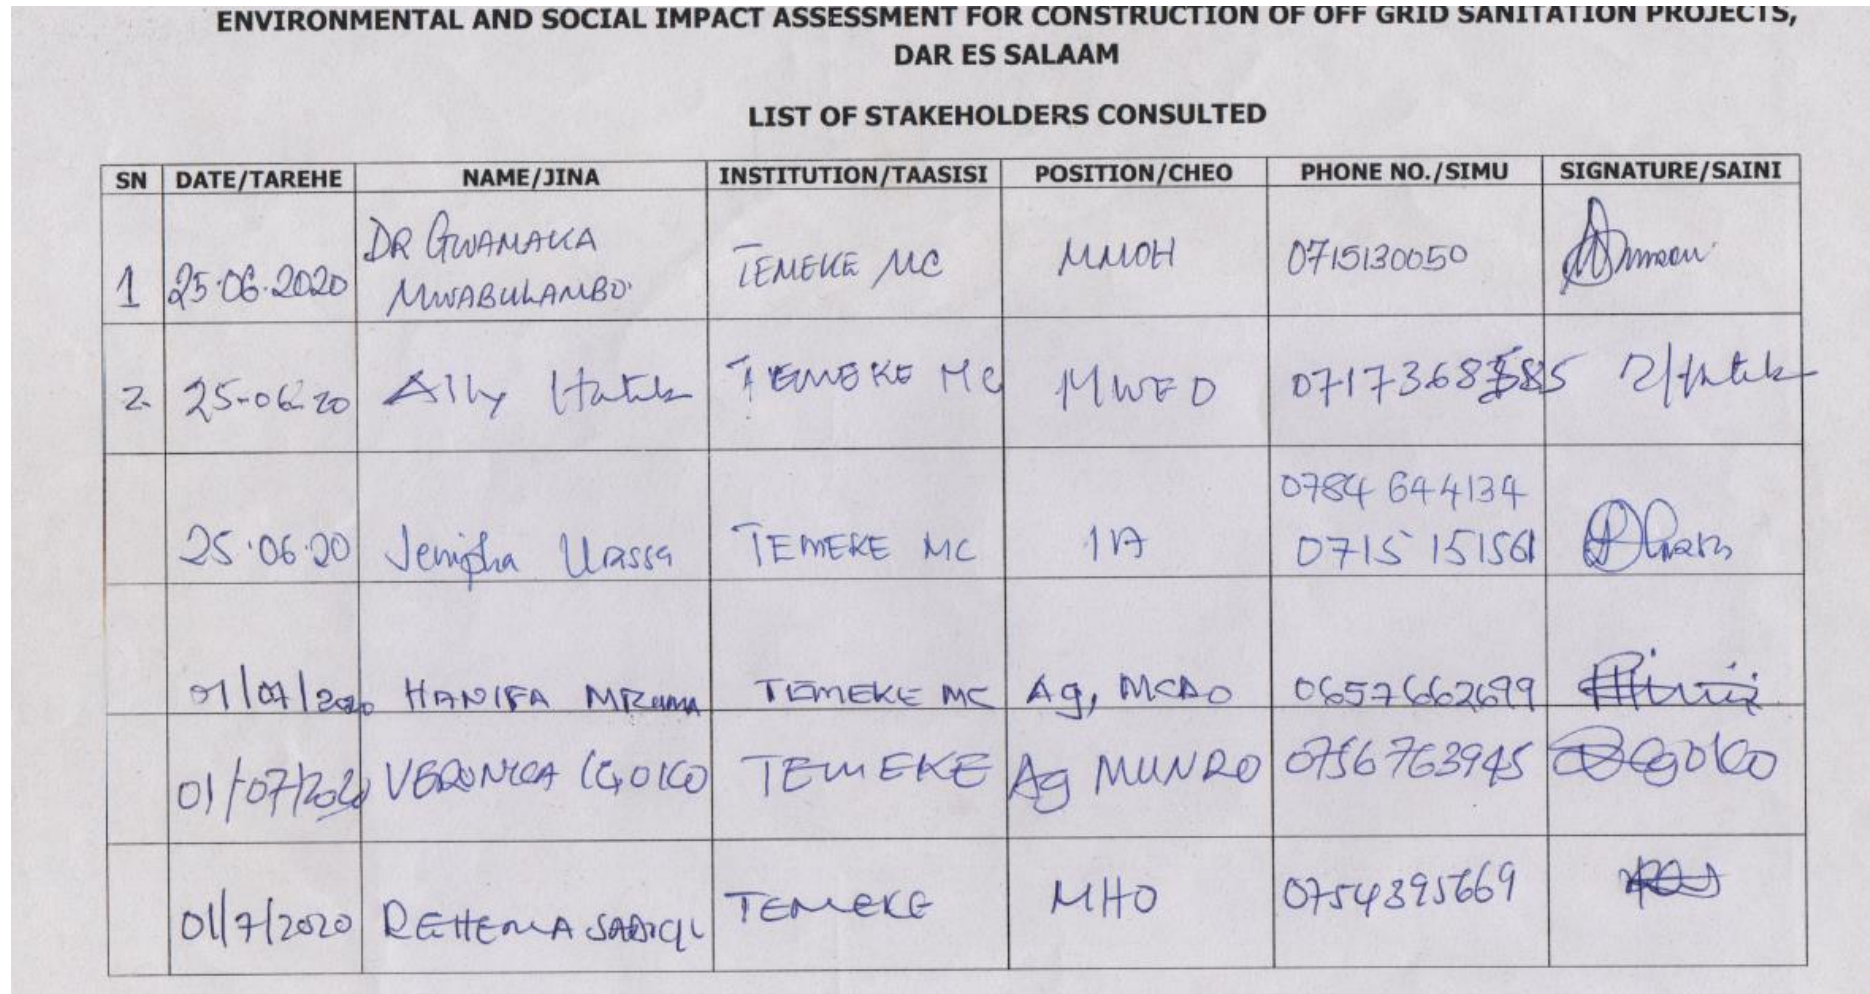 ENVIRONMENTAL AND SOCIAL IMPACT ASSESSMENT FOR CONSTRUCTION OF OFF GRID SANITATION PROJECTS,
DAR ES SALAAM
LIST OF STAKEHOLDERS CONSULTED
SN DATE/TAREHE NAME/JINA INSTITUTION/TAASISI POSITION/CHEO PHONE NO./SIMU SIGNATURE/SAINI
1 25.06.2020 DR GWAMAKA MWABULAMBO. TEMEKE MC MMOH 0715130050
2. 25-06-20 Ally TEMEKE MC MWED
25.06.20 Jenipha Urassa TEMEKE MC 0784 644134
0715 151561
01/07/2020 HANIFA MRUMA TEMEKE MC Ag, MCDO 0657662699
01/07/2020 VERONICA TEMEKE Ag 0756763945
01/7/2020 REHEMA SADICK TEMEKE MHO 0754395669